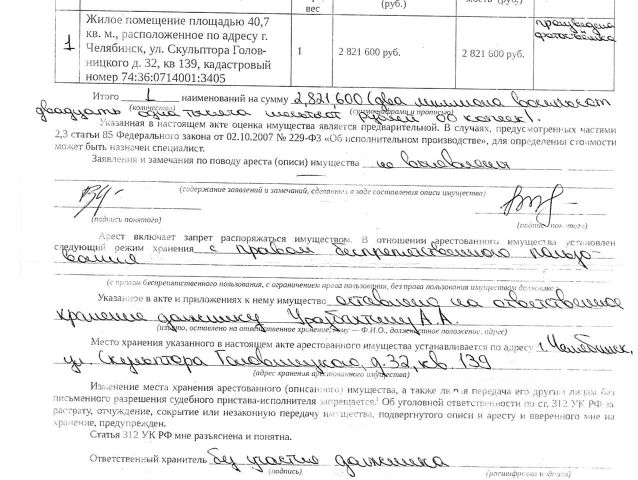 вес (руб.) мость (руб.)
1 Жилое помещение площадью 40,7 кв. м., расположенное по адресу г. Челябинск, ул. Скульптора Голов- ницкого д. 32, кв 139, кадастровый номер 74:36:0714001:3405 1 2 821 600 руб. 2 821 600 руб. произведена фотосъёмка
Итого 1 наименований на сумму 2,821,600 (два миллиона восемьсот
(количество) (суммо прописью)
двадцать одна тысяча шестьсот рублей 00 копеек).
Указанная в настоящем акте оценка имущества является предварительной. В случаях, предусмотренных частями
2,3 статьи 85 Федерального закона от 02.10.2007 № 229-ФЗ «Об исполнительном производстве», для определения стоимости
может быть назначен специалист.
Заявления и замечания по поводу ареста (описи) имущества не заявлены
(содержание заявлений и замечаний, сделанных в ходе составления описи имущества)
(подпись понятого) (подпись понятого)
Арест включает запрет распоряжаться имуществом. В отношении арестованного имущества установлен
следующий режим хранения с правом беспрепятственного пользо-
вания
(с правом беспрепятственного пользования, с ограничением права пользования, без права пользования имуществом должнике)
Указанное в акте и приложениях к нему имущество оставлено на ответственное
хранение должнику А.А.
(изъято, оставлено на ответственное хранение, кому — Ф.И.О., должностное положение, адрес)
Место хранения указанного в настоящем акте арестованного имущества устанавливается по адресу г. Челябинск,
ул. Скульптора Головницкого, д. 32 кв. 139
(адрес хранения арестованного имущества)
Изменение места хранения арестованного (описанного) имущества, а также передача его другим лицам без
письменного разрешения судебного пристава-исполнителя запрещается. Об уголовной ответственности по ст. 312 УК РФ за
растрату, отчуждение, сокрытие или незаконную передачу имущества, подвергнутого описи и аресту и вверенного мне на
хранение, предупрежден.
Статья 312 УК РФ мне разъяснена и понятна.
Ответственный хранитель без участия должника
(подпись) (расшифровка подписи)